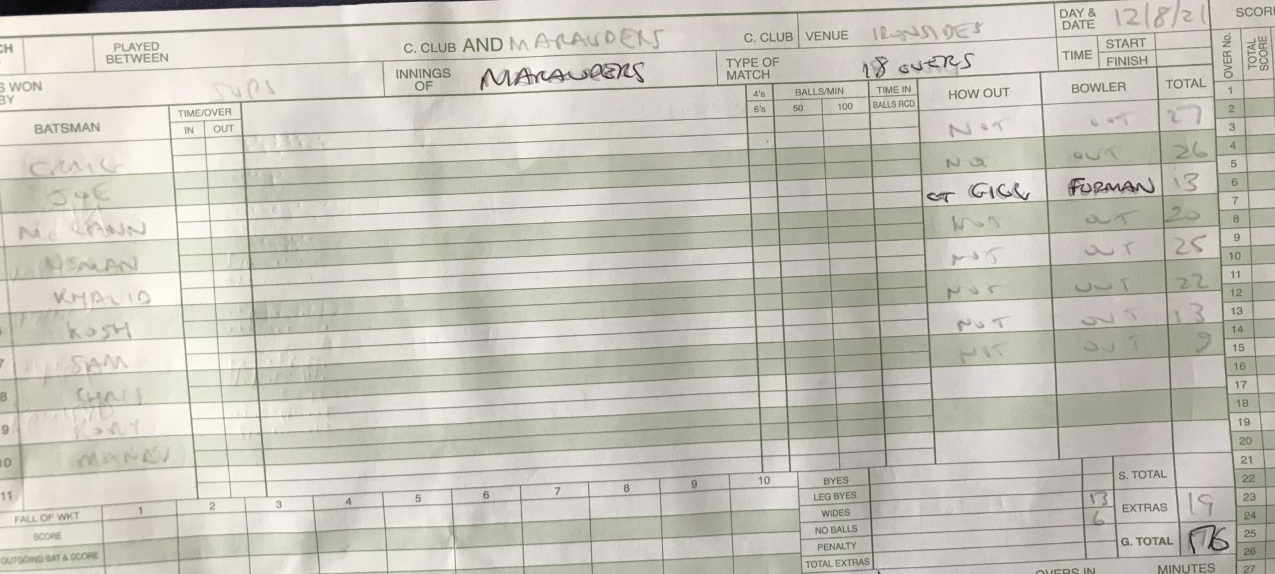 CH PLAYED BETWEEN C. CLUB AND MARAUDERS C. CLUB VENUE IRONSIDES DAY & DATE 12/8/21 SCORI
S WON BY INNINGS OF MARAUDERS TYPE OF MATCH 18 OVERS TIME START FINISH OVER No. TOTAL SCORE
BATSMAN TIME/OVER IN OUT 4's 6's BALLS/MIN 50 100 TIME IN BALLS RCD HOW OUT BOWLER TOTAL
CRAIG NOT OUT 27
JOE NO OUT 26
CT GILL FURMAN 13
NOT OUT 20
KHALID NOT OUT 25
KOSH NOT OUT 22
7 SAM NOT OUT 13
8 CHRIS NOT OUT 9
9 RORY
10
11
1
2
3
4
5
6
7
8
9
10
11
12
13
14
15
16
17
18
19
20
21
22
23
24
25
26
27
FALL OF WKT 1 2 3 4 5 6 7 8 9 10
SCORE
OUTGOING BAT & SCORE
BYES
LEG BYES
WIDES 13
NO BALLS 6
PENALTY
TOTAL EXTRAS
S. TOTAL
EXTRAS 19
G. TOTAL 176
OVERS IN MINUTES